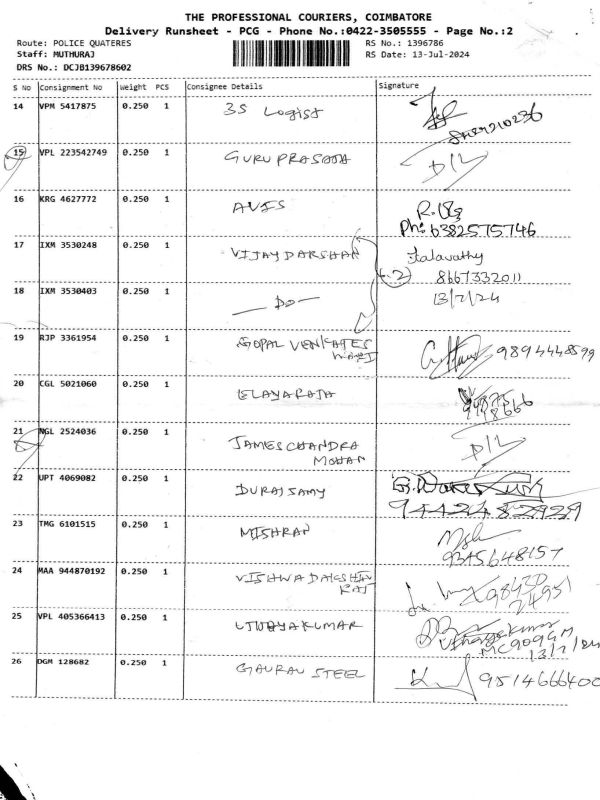 THE PROFESSIONAL COURIERS, COIMBATORE
Delivery Runsheet - PCG - Phone No.:0422-3505555 - Page No.:2
Route: POLICE QUATERES
RS No.: 1396786
Staff: MUTHURAJ
RS Date: 13-Jul-2024
DRS No.: DCJB139678602
S No Consignment No Weight PCS Consignee Details Signature
14 VPM 5417875 0.250 1 3S Logist
15 VPL 223542749 0.250 1 GURU PRASATH D/L
16 KRG 4627772 0.250 1 AVIS
Ph: 6382575746
17 IXM 3530248 0.250 1 VIJAY DARSHAN
8667332011
18 IXM 3530403 0.250 1 — DO — 13/7/24
19 RJP 3361954 0.250 1 GOPAL VENKATES 9894448599
20 CGL 5021060 0.250 1 ELAYARAJA
21 NGL 2524036 0.250 1 JAMES CHANDRA MOHAN D/L
22 UPT 4069082 0.250 1 DURAISAMY
9442482929
23 TMG 6101515 0.250 1 MISHRAN
9345648157
24 MAA 944870192 0.250 1 VISHWA DAKSHIN RAJ
98420
24951
25 VPL 405366413 0.250 1 VIJAYAKUMAR Vijayakumar
13/7/24
26 DGM 128682 0.250 1 GAURAV STEEL 9514666400